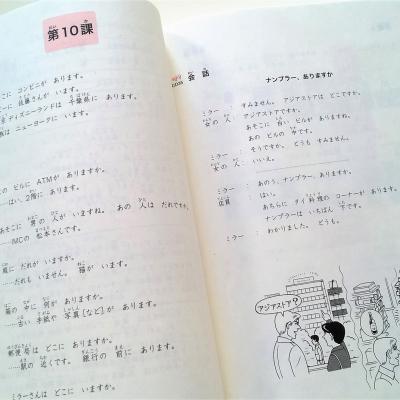 第10課
にコンビニが あります。
佐藤さんが います。
ディズニーランドは 千葉県に あります。
は ニューヨークに います。
ビルに ATMが ありますか。
……はい、2階に あります。
あそこに 男の 人が いますね。 あの 人は だれですか。
……IMCの 松本さんです。
庭に だれが いますか。
……だれも いません。 猫が います。
箱の 中に 何が ありますか。
……古い 手紙や 写真[など]が あります。
郵便局は どこに ありますか。
……駅の 近くです。 銀行の 前に あります。
ミラーさんは どこに いますか。
会 話
ナンプラー、ありますか
ミラー： すみません。 アジアストアは どこですか。
女の 人： アジアストアですか。
あそこに 白い ビルが ありますね。
あの ビルの 中です。
ミラー： そうですか。 どうも すみません。
女の 人： いいえ。
ミラー： あのう、ナンプラー、ありますか。
店員： はい。
あちらに タイ 料理の コーナーが あります。
ナンプラーは いちばん 下です。
ミラー： わかりました。 どうも。
アジアストア？